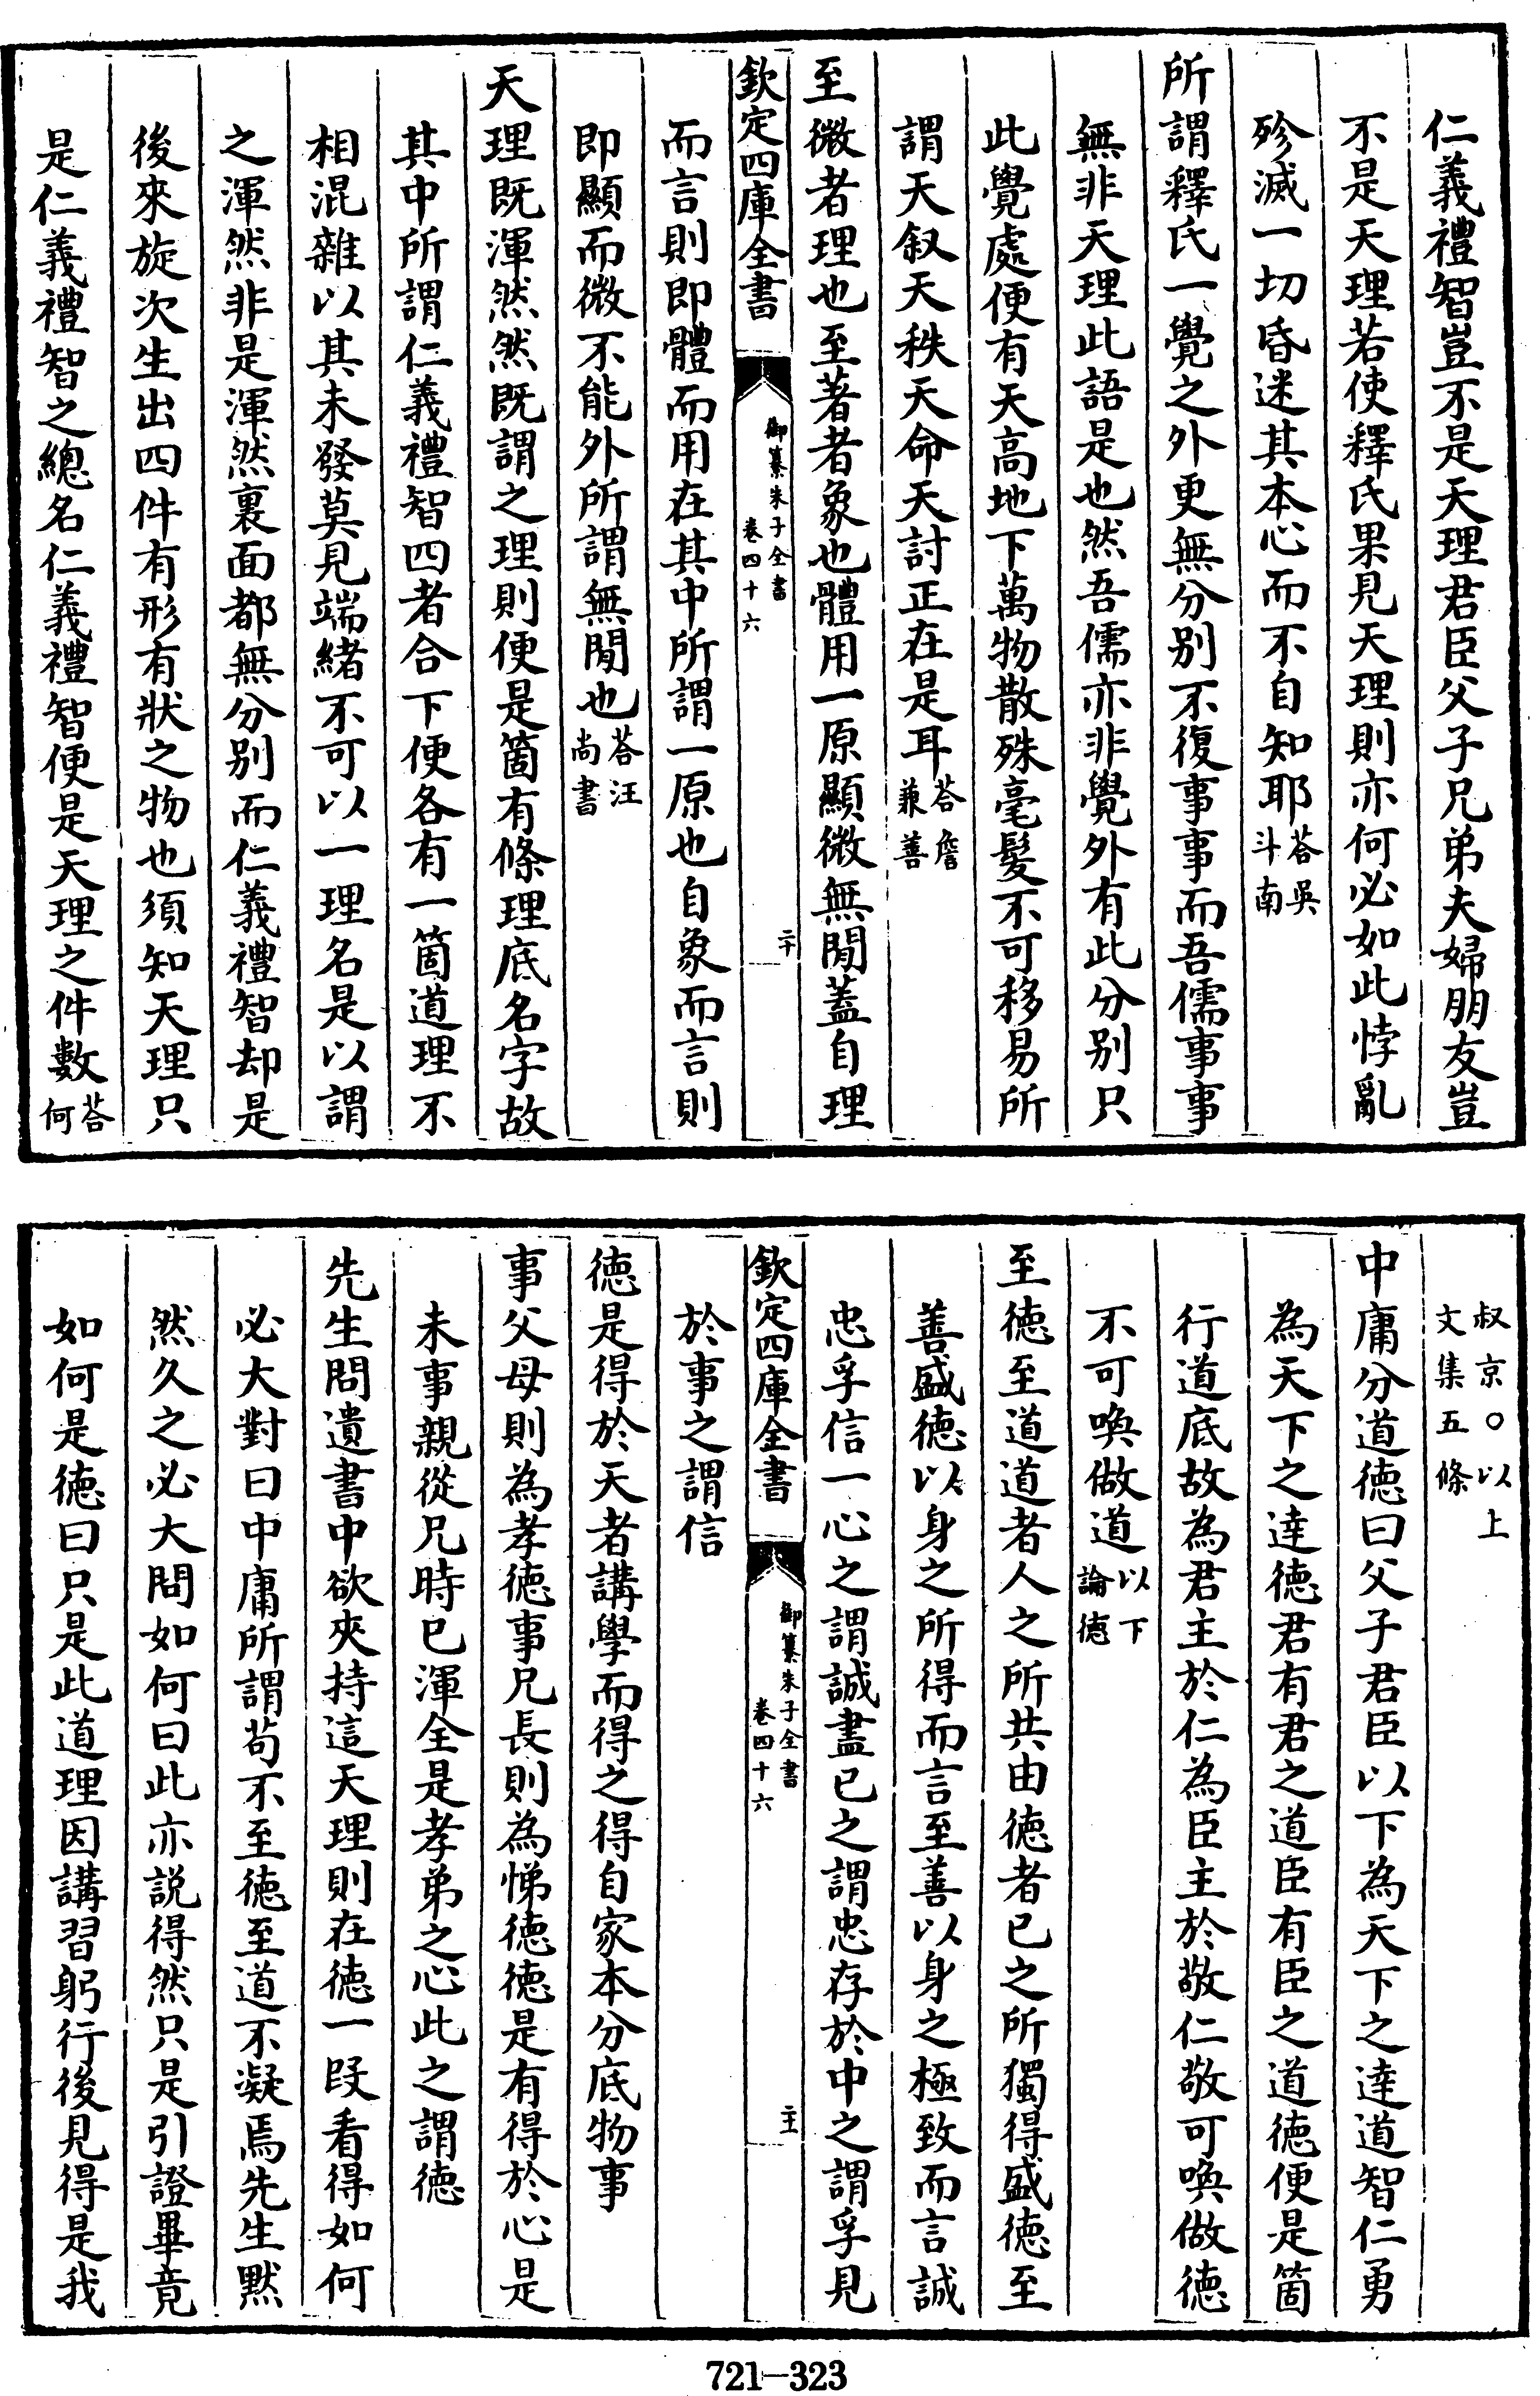 仁義禮智豈不是天理君臣父子兄弟夫婦朋友豈
不是天理若使釋氏果見天理則亦何必如此悖亂
殄滅一切昏迷其本心而不自知耶荅吳斗南
所謂釋氏一覺之外更無分别不復事事而吾儒事事
無非天理此語是也然吾儒亦非覺外有此分别只
此覺處便有天高地下萬物散殊毫髮不可移易所
謂天叙天秩天命天討正在是耳荅詹兼善
至微者理也至著者象也體用一原顯微無閒蓋自理
欽定四庫全書
御纂朱子全書
卷四十六
二十
而言則即體而用在其中所謂一原也自象而言則
即顯而微不能外所謂無閒也荅汪尚書
天理既渾然然既謂之理則便是箇有條理底名字故
其中所謂仁義禮智四者合下便各有一箇道理不
相混雜以其未發莫見端緒不可以一理名是以謂
之渾然非是渾然裏面都無分别而仁義禮智却是
後來旋次生出四件有形有狀之物也須知天理只
是仁義禮智之總名仁義禮智便是天理之件數荅何
叔京○以上文集五條
中庸分道徳曰父子君臣以下為天下之達道智仁勇
為天下之達徳君有君之道臣有臣之道徳便是箇
行道底故為君主於仁為臣主於敬仁敬可喚做徳
不可喚做道以下論徳
至徳至道道者人之所共由徳者已之所獨得盛徳至
善盛徳以身之所得而言至善以身之極致而言誠
忠孚信一心之謂誠盡已之謂忠存於中之謂孚見
欽定四庫全書
御纂朱子全書
卷四十六
二十一
於事之謂信
徳是得於天者講學而得之得自家本分底物事
事父母則為孝徳事兄長則為悌徳徳是有得於心是
未事親從兄時已渾全是孝弟之心此之謂徳
先生問遺書中欲夾持這天理則在徳一段看得如何
必大對曰中庸所謂苟不至徳至道不凝焉先生黙
然久之必大問如何曰此亦説得然只是引證畢竟
如何是徳曰只是此道理因講習躬行後見得是我
721—323